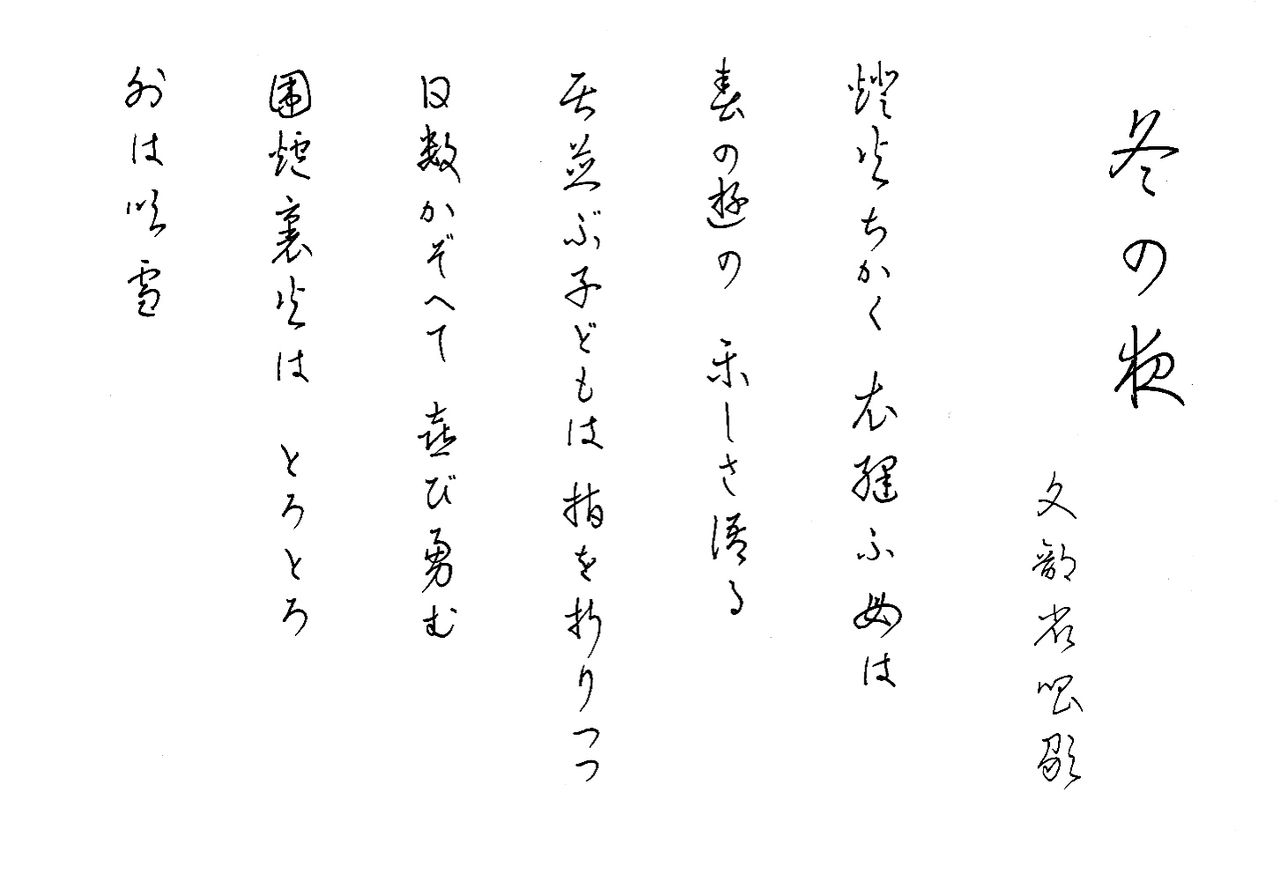 冬の夜
文部省唱歌
燈火ちかく 衣縫ふ母は
春の遊の 楽しさ語る
居並ぶ子どもは 指を折りつつ
日数かぞへて 喜び勇む
囲炉裏火は とろとろ
外は吹雪